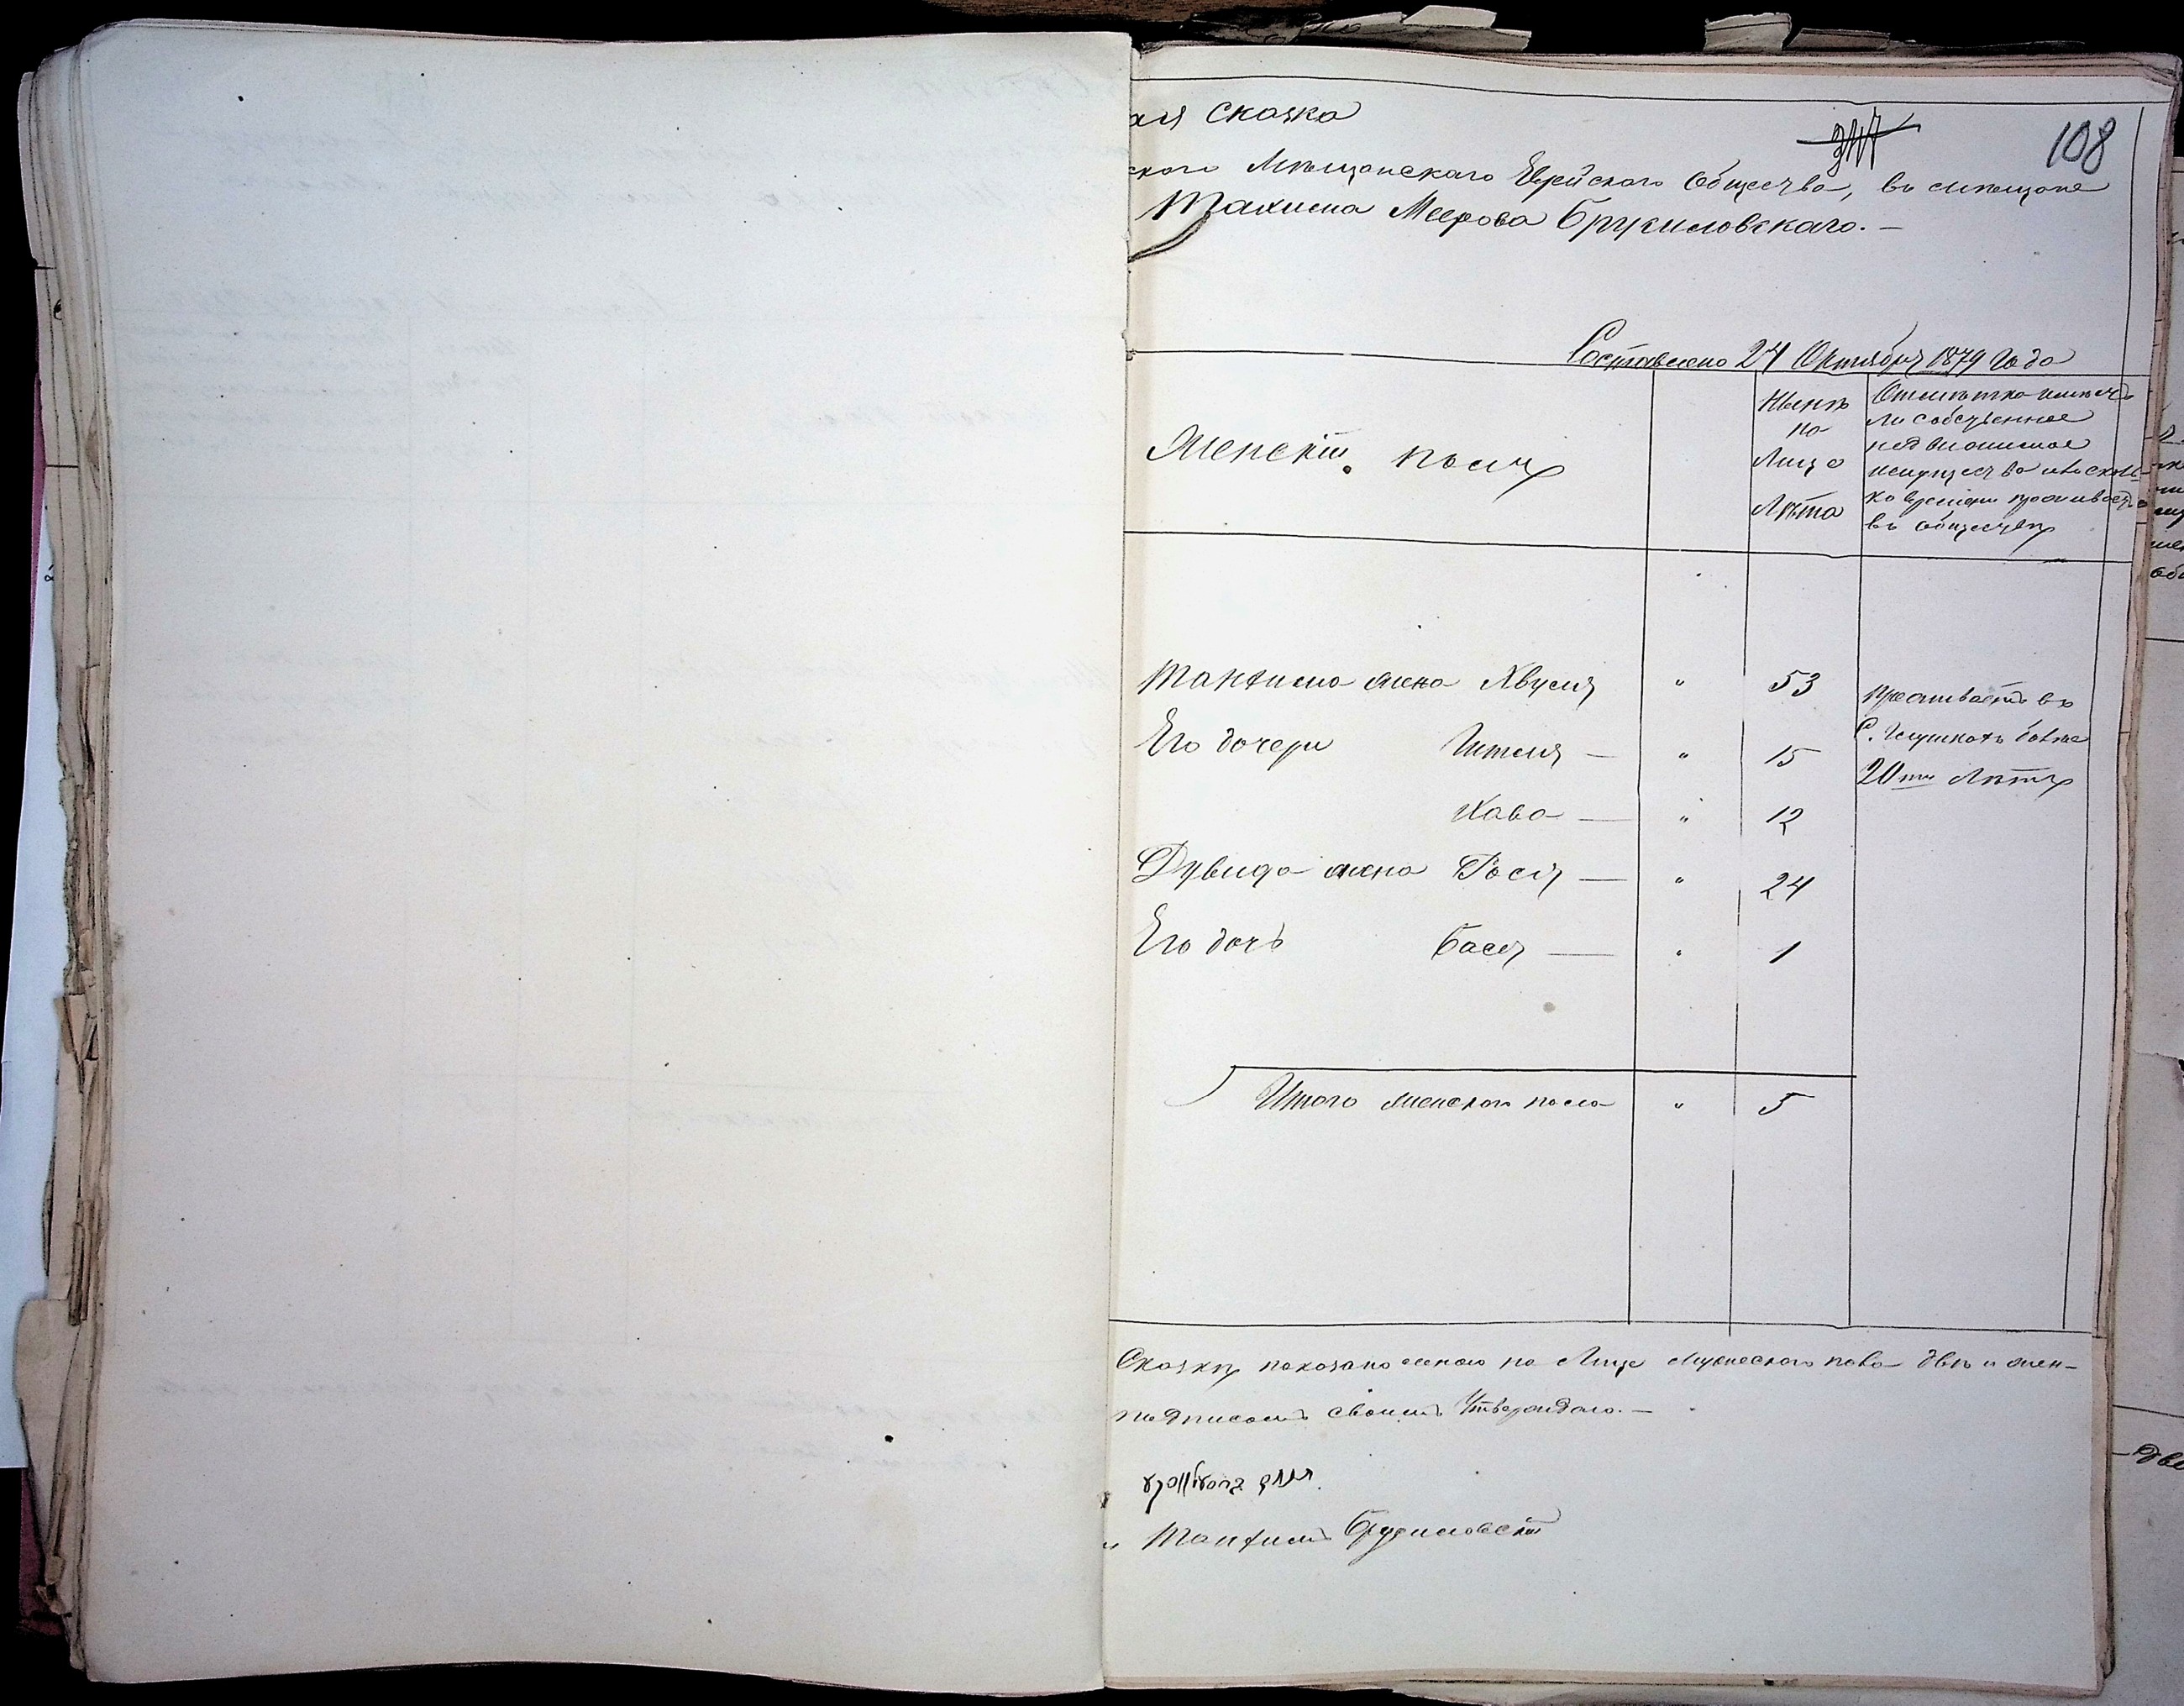 ая Сказка
347 108
ского Мѣщанскаго Еврейскаго Общества, въ мѣщане
Танхима Меерова Брусиловскаго. —
Составлено 27 Октября 1879 Года
Женскій полъ
Нынѣ
на
Лицо
Лѣта
Отмѣтка имѣетъ
ли собственное
недвижимое
имущество и сколь-
ко времени проживаетъ
въ обществѣ
Танхима жена Хвуля " 53
проживаетъ въ
Его дочери Ителя — " 15
20ти Лѣтъ
Хава — " 12
Дувида жена Рося — " 24
Его дочь Бася — " 1
Итого женскаго пола " 5
Сказку показано мною на Лицо Мужескаго пола двѣ и жен-
подписомъ своимъ Утверждаю. —
Танхимъ Брусиловскій